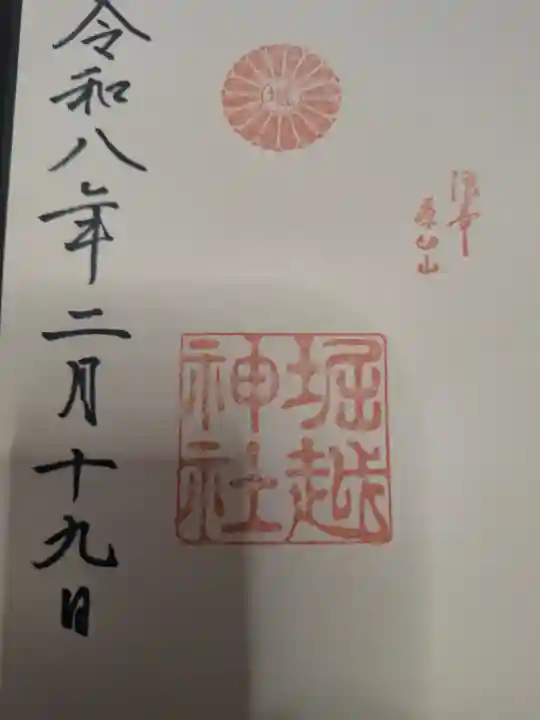 茶臼山
堀越
神社
令和八年二月十九日